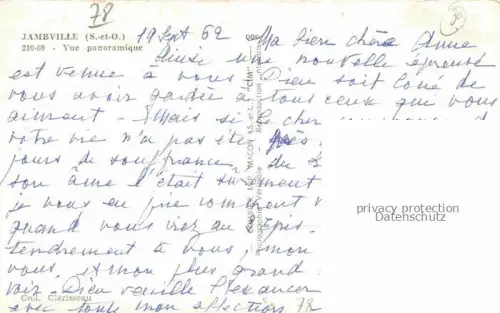 78
JAMBVILLE (S.-et-O.)
210-60 - Vue panoramique
19 Sept 62
Ma bien chère Anne
Ainsi une nouvelle épreuve
est venue à vous. Dieu soit loué de
vous avoir gardée à tous ceux qui vous
aiment - Mais si le cher
votre vie n'a pas été
jours de souffrance du
son âme l'était sûrement
je vous en prie comment
quand vous irez au
tendrement à vous, mon
vous. et mon plus grand
voir. Dieu veuille exaucer
Coll. Clarisseau
avec toute mon affection 78
privacy protection
Datenschutz